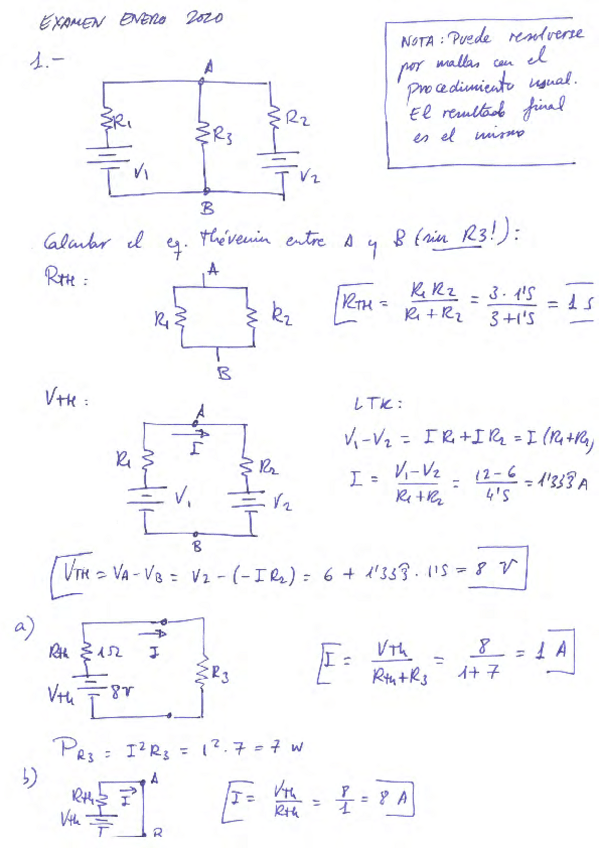 EXAMEN ENERO 2020
NOTA: Puede resolverse
por mallas con el
procedimiento usual.
El resultado final
es el mismo
1.-
A
R1
R3
R2
V1
V2
B
Calcular el eq. Thévenin entre A y B (sin R3!):
RTH:
A
R1
R2
B
RTH = R1 R2 / R1 + R2 = 3 · 1'5 / 3 + 1'5 = 1 S
VTH:
A
I
R1
R2
V1
V2
B
LTK:
V1 - V2 = I R1 + I R2 = I (R1 + R2)
I = V1 - V2 / R1 + R2 = 12 - 6 / 4'5 = 1'333 A
VTH = VA - VB = V2 - (-I R2) = 6 + 1'333 · 1'5 = 8 V
a)
Rth
1Ω
I
Vth
8V
R3
I = Vth / Rth + R3 = 8 / 1 + 7 = 1 A
PR3 = I² R3 = 1² · 7 = 7 W
b)
A
Rth
I
Vth
B
I = Vth / Rth = 8 / 1 = 8 A